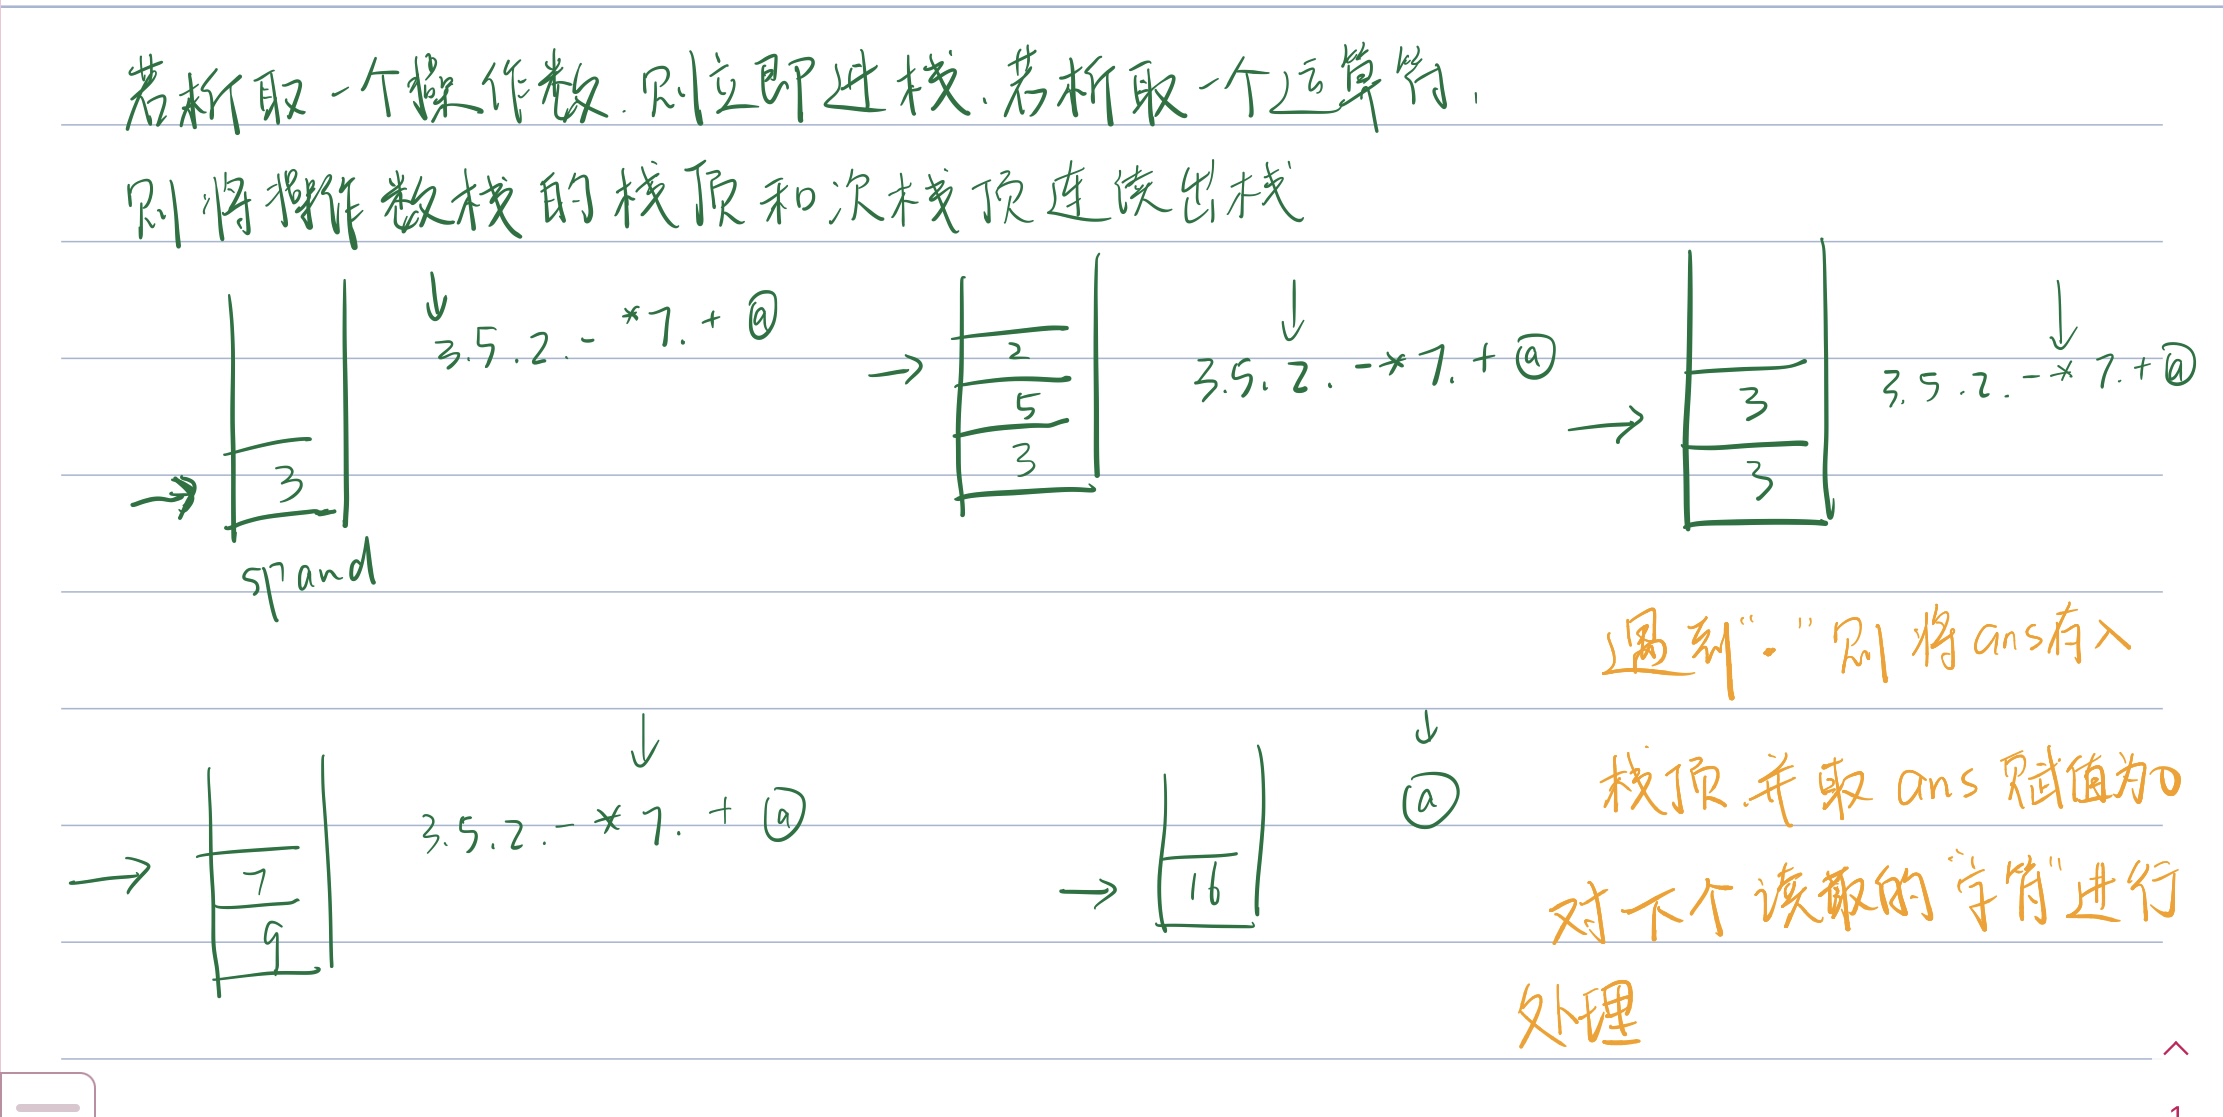 若析取一个操作数.则立即进栈.若析取一个运算符,
则将操作数栈的栈顶和次栈顶连续出栈
3.5.2.-*7.+@
3
spand
2
5
3
3.5.2.-*7.+@
3
3
3.5.2.-*7.+@
遇到"."则将ans存入
栈顶.并取ans赋值为0
对下个读取的"字符"进行
处理
3.5.2.-*7.+@
7
9
@
16
1